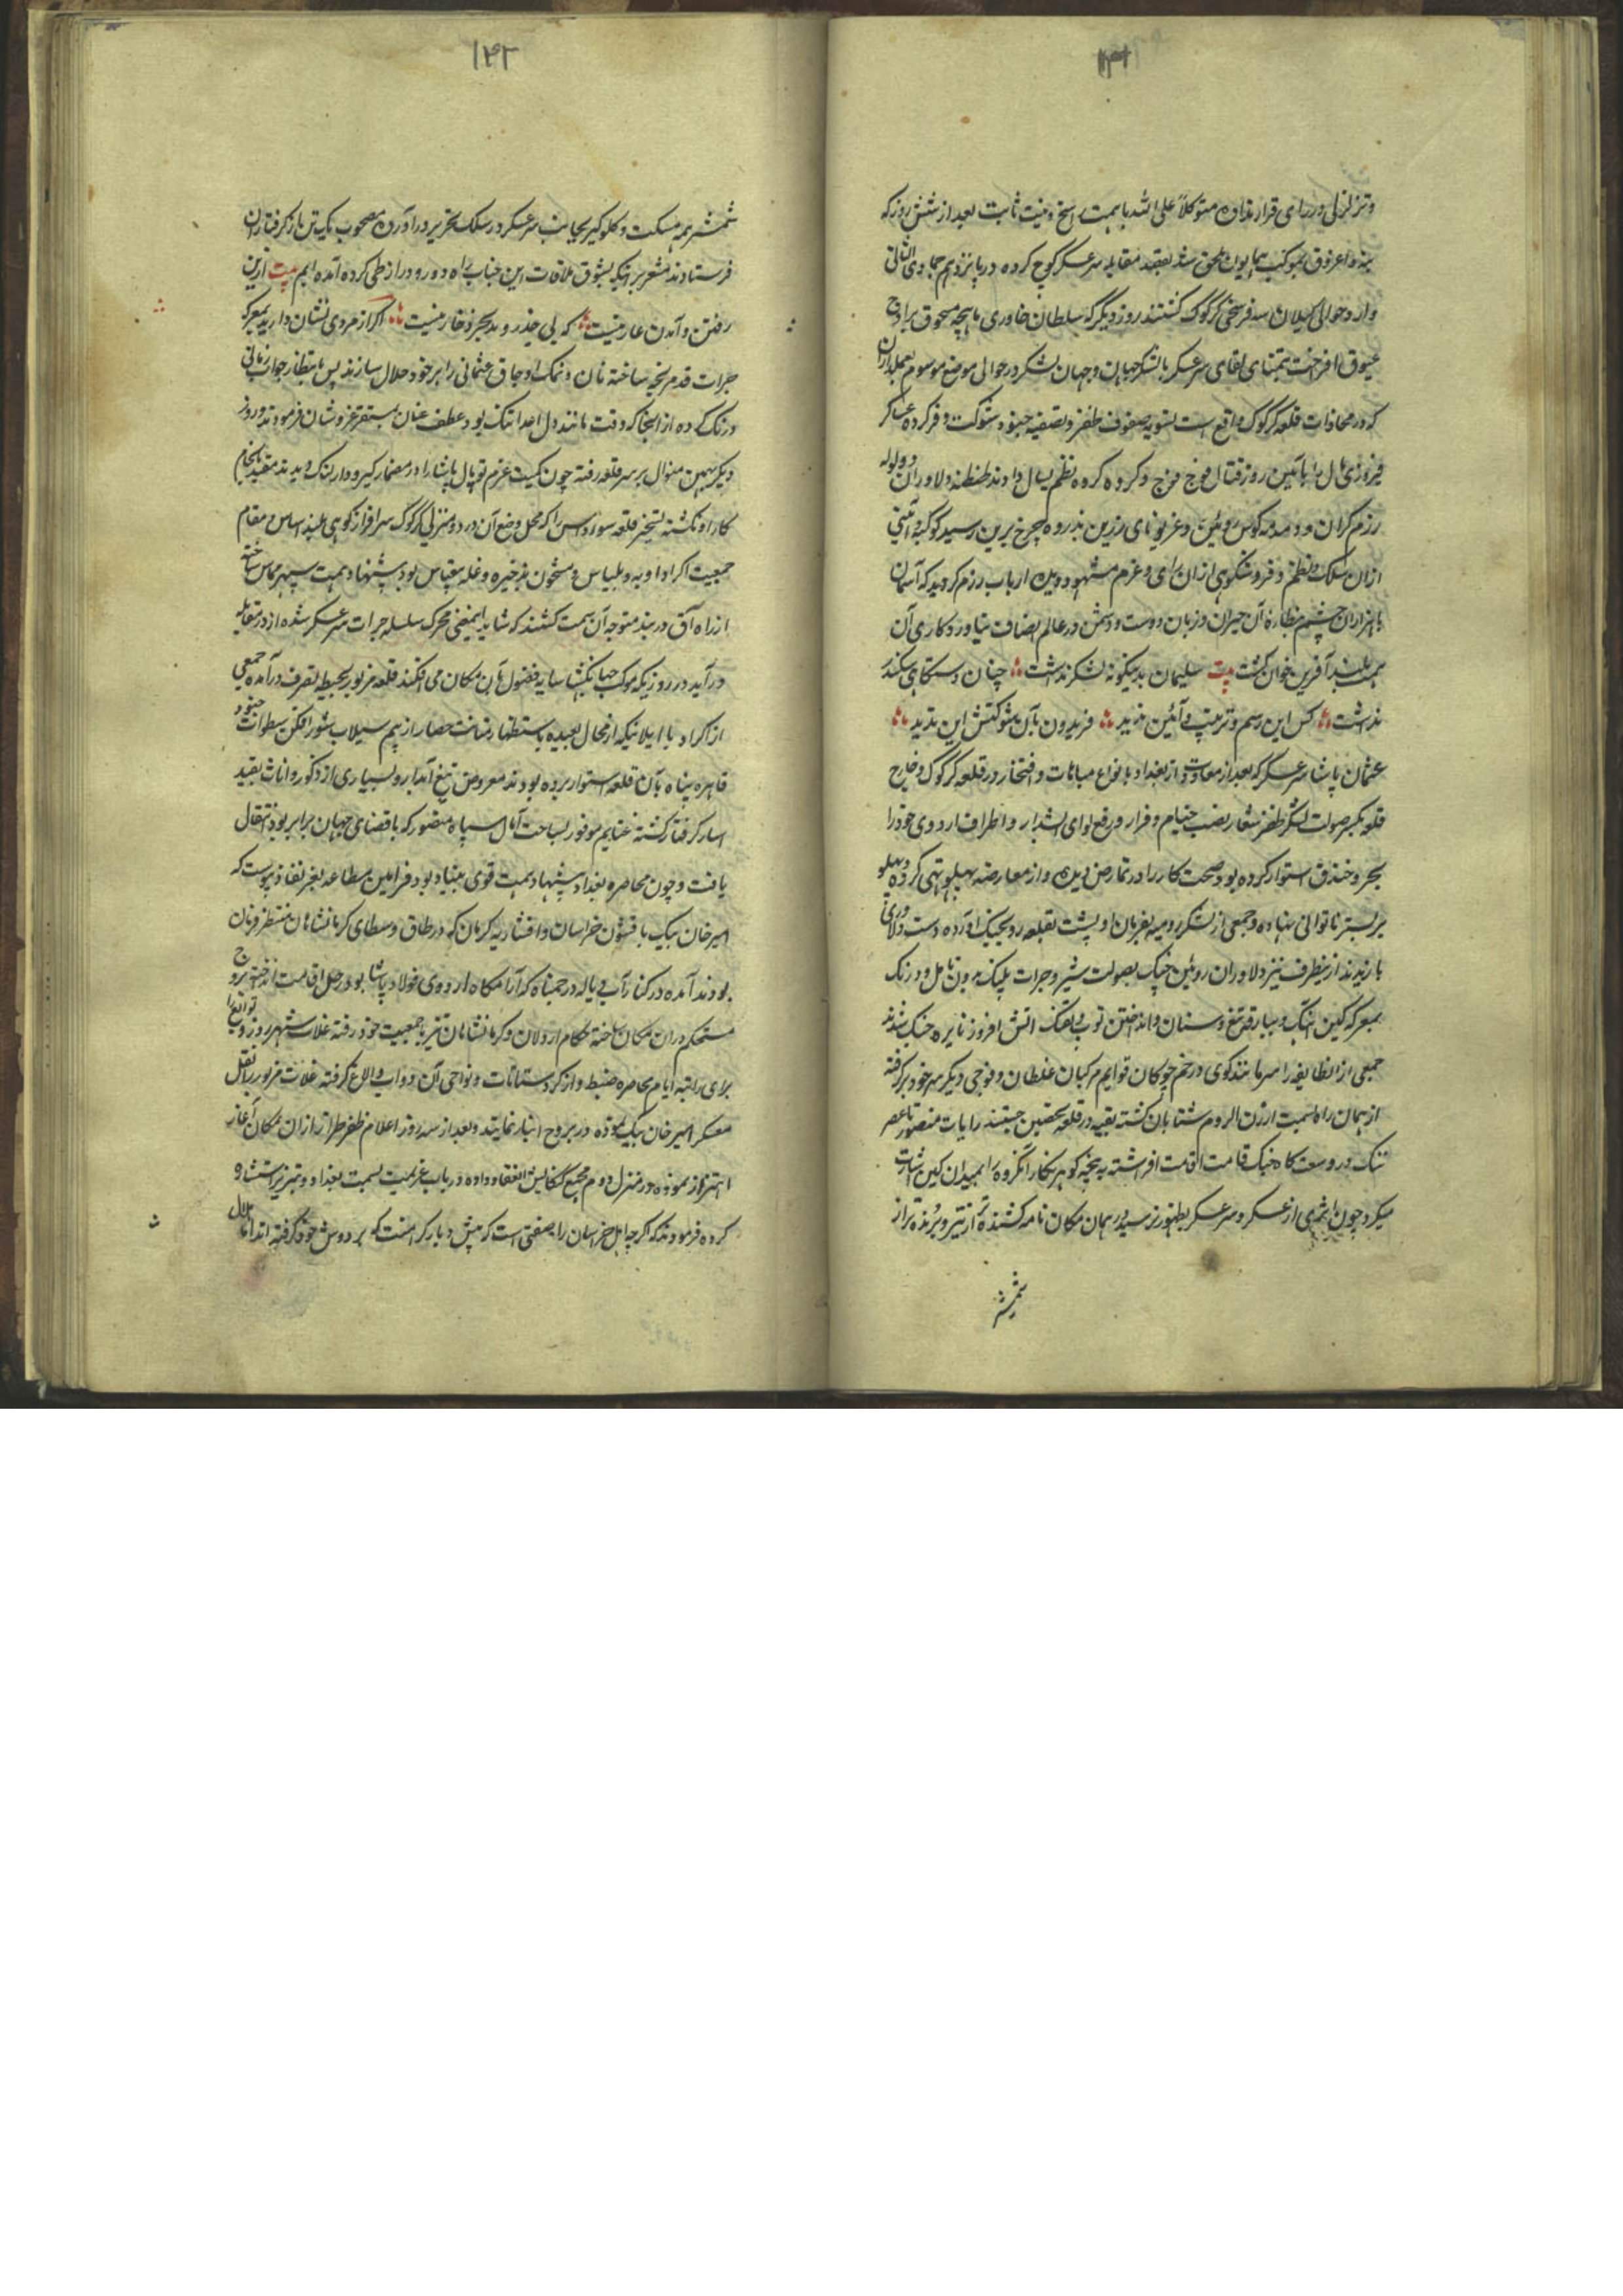 ۱۴۱
وتزلزلی در رای قرار نداده متوکلاً علی الله با همت راسخ و نیت ثابت بعد از شش روز که
بنه و اغروق بموکب همایون ملحق شد بقصد مقابله سرعسکر کوچ کرده در پانزدهم جمادی الثانی
وارد حوالی کیلان سه فرسخی کرکوک کشتند روز دیگر که سلطان خاوری ماهچه سنجوق بر اوج
عیوق افراخت بتمنای لقای سرعسکر با لشکر جهان جهان لشکر در حوالی موضع موسوم بعلمداران
که در محاذات قلعه کرکوک واقع است بتسویه صفوف ظفر و تصفیه جنود شوکت و فر کرده عساکر
فیروزی مآل را بآئین روز قتال فوج فوج و کروه کروه نظم یسال دادند طنطنه دلاوران و ولوله
رزم کران و دمدمه کوس روئین و غریو نای زرین بذروه چرخ برین رسید کوکبه و آئینی
از ان سلک و نظم و فر و شکوهی از ان رای و عزم مشهود دیده ارباب رزم کردید که آسمان
با هزاران چشم نظاره آن حیران و زبان دوست و دشمن در عالم انصاف بیاوری کاری آن
همت بلند آفرین خوان کشت بیت سلیمان بدینکونه لشکر نداشت چنان دستکاهی سکندر
نداشت کس این رسم و ترتیب و آئین ندید فریدون بآن شوکتش این ندید
عثمان پاشا سرعسکر که بعد از معاودت از بغداد با نواع مباهات و افتخار در قلعه کرکوک و خارج
قلعه بمکر صولت لشکر ظفر شعار نصب خیام و قرار و رفع لوای اشتهار و اطراف اردوی خود را
بجر و خندق استوار کرده بود صحت کار را در تمارض دیده و از معارضه پهلو تهی کرده و پهلو
بر بستر ناتوانی نهاده و جمعی از لشکر رومیه بفرمان او پشت بقلعه رو بجنک آورده دست و لاوری
بازیدند از ینطرف نیز دلاوران روئین چنک بصولت شیر و جرات پلنک بدون تامل و درنک
بمعرکه کین آهنک و ببارقه تیغ و سنان و انداختن توپ و تفنک آتش افروز نایره جنک شدند
جمعی از انطایفه را سر مانند کوی در خم چوکان قوایم مرکبان غلطان و فوجی دیکر سر خود بر کرفته
از همان راه بسمت ارزن الروم شتابان کشته بقیه در قلعه تحصین جستند رایات منصور تا عصر
تنک در وسعت کاه جنک قامت اقامت افراشته به پنجه کوهر نکار آنکروه را بمیدان کین اشارت
میکرد چون اثری از عسکر و سرعسکر بظهور نرسید در همان مکان نامه کشنده تر از تیر و برنده تر از
شمشیر
۱۴۲
شمشیر همه مسکت و کلوکیر بجانب سرعسکر در سلک تحریر در آورده مصحوب یک تن از کرفتاران
فرستادند مشعر بر اینکه بشوق ملاقات این جناب راه دور و دراز طی کرده آمده ایم بیت از ین
رفتن و آمدن عار نیست که بی جذر و مد بحر ذخار نیست اکر از مردی نشان دارید بمعرکه
جرات قدم رنجه ساخته نان و نمک اوجاق عثمانی را بر خود حلال سازند پس بانتظار جواب زمانی
درنک کرده از انجا که وقت مانند دل اعدا تنک بود عطف عنان بمستقر عز و شان فرمودند و روز
دیکر بهمین منوال بر سر قلعه رفته چون کمیت عزم توپال پاشا را در مضمار کیر و دار لنک دیدند مقید بانجام
کار او نکشته تسخیر قلعه سورداش را که محل وضع آن در دو منزلی کرکوک سرافراز کوهی بلند اساس و مقام
جمعیت اکراد ادوبه و بلباس و مشحون بذخیره و غله بیقیاس بود پیشنهاد همت سپهر مماس ساخته
از راه آق دربند متوجه آن سمت کشتند که شاید اینمعنی محرک سلسله جرات سرعسکر شده از در مقابله
در آید در روزیکه موکب جهانکشا سایه وصول بآن مکان می افکند قلعه مزبور بحیطه تصرف در آمده جمعی
از اکراد با ایلاتیکه از محال بعیده باستظهار متانت حصار از بیم سیلاب شور افکن سطوات جنود
قاهره پناه بآن قلعه استوار برده بودند معروض تیغ آبدار و بسیاری از ذکور و اناث بقید
اسار کرفتار کشته غنایم موفور بساحت آمال سپاه منصور که با فضای جهان برابر بود انتقال
یافت و چون محاصره بغداد پیشنهاد همت قوی بنیاد بود فرامین مطاعه بعز نفاذ پیوست که
امیر خان بیک با قشون خراسان و افشاریه کرمان که در طاق وسطای کرمانشاهان منتظر فرمان
بودند آمده در کنار آب دیاله در جمناه که آرامکاه اردوی فولاد پاشا بود رحل اقامت انداخته بروج
مستحکم در ان مکان ساخته حکام اردلان و کرمانشاهان نیز با جمعیت خود رفته غلات شهر زور و توابع را
برای راتبه ایام محاصره ضبط و از کردستانات و نواحی آن دواب و الاغ کرفته غلات مزبور را نقل
معسکر امیر خان بیک نموده در بروج انبار نمایند و بعد از سه روز اعلام ظفر طراز از ان مکان آغاز
اهتزاز نموده در منزل دوم مجمع کنکایش انعقاد داده در باب عزیمت بسمت بغداد و تبریز استشاره
کرده فرمودند که اکرچه اهل خراسان را بصفتی است که پیش دبار کر امنت که بر دوش خود کرفته اند اما بلال